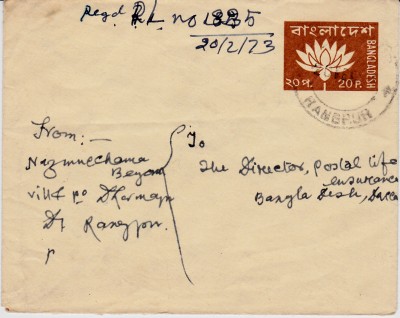 Regd RL no 1335
20/2/73
বাংলাদেশ
BANGLADESH
২০ প. 20 P.
From:-
Nazmunechama
Begam
vill & po Dharmapur
Dt Rangpur.
To
The Director, postal life
ensurance
Bangla Desh, Dacca